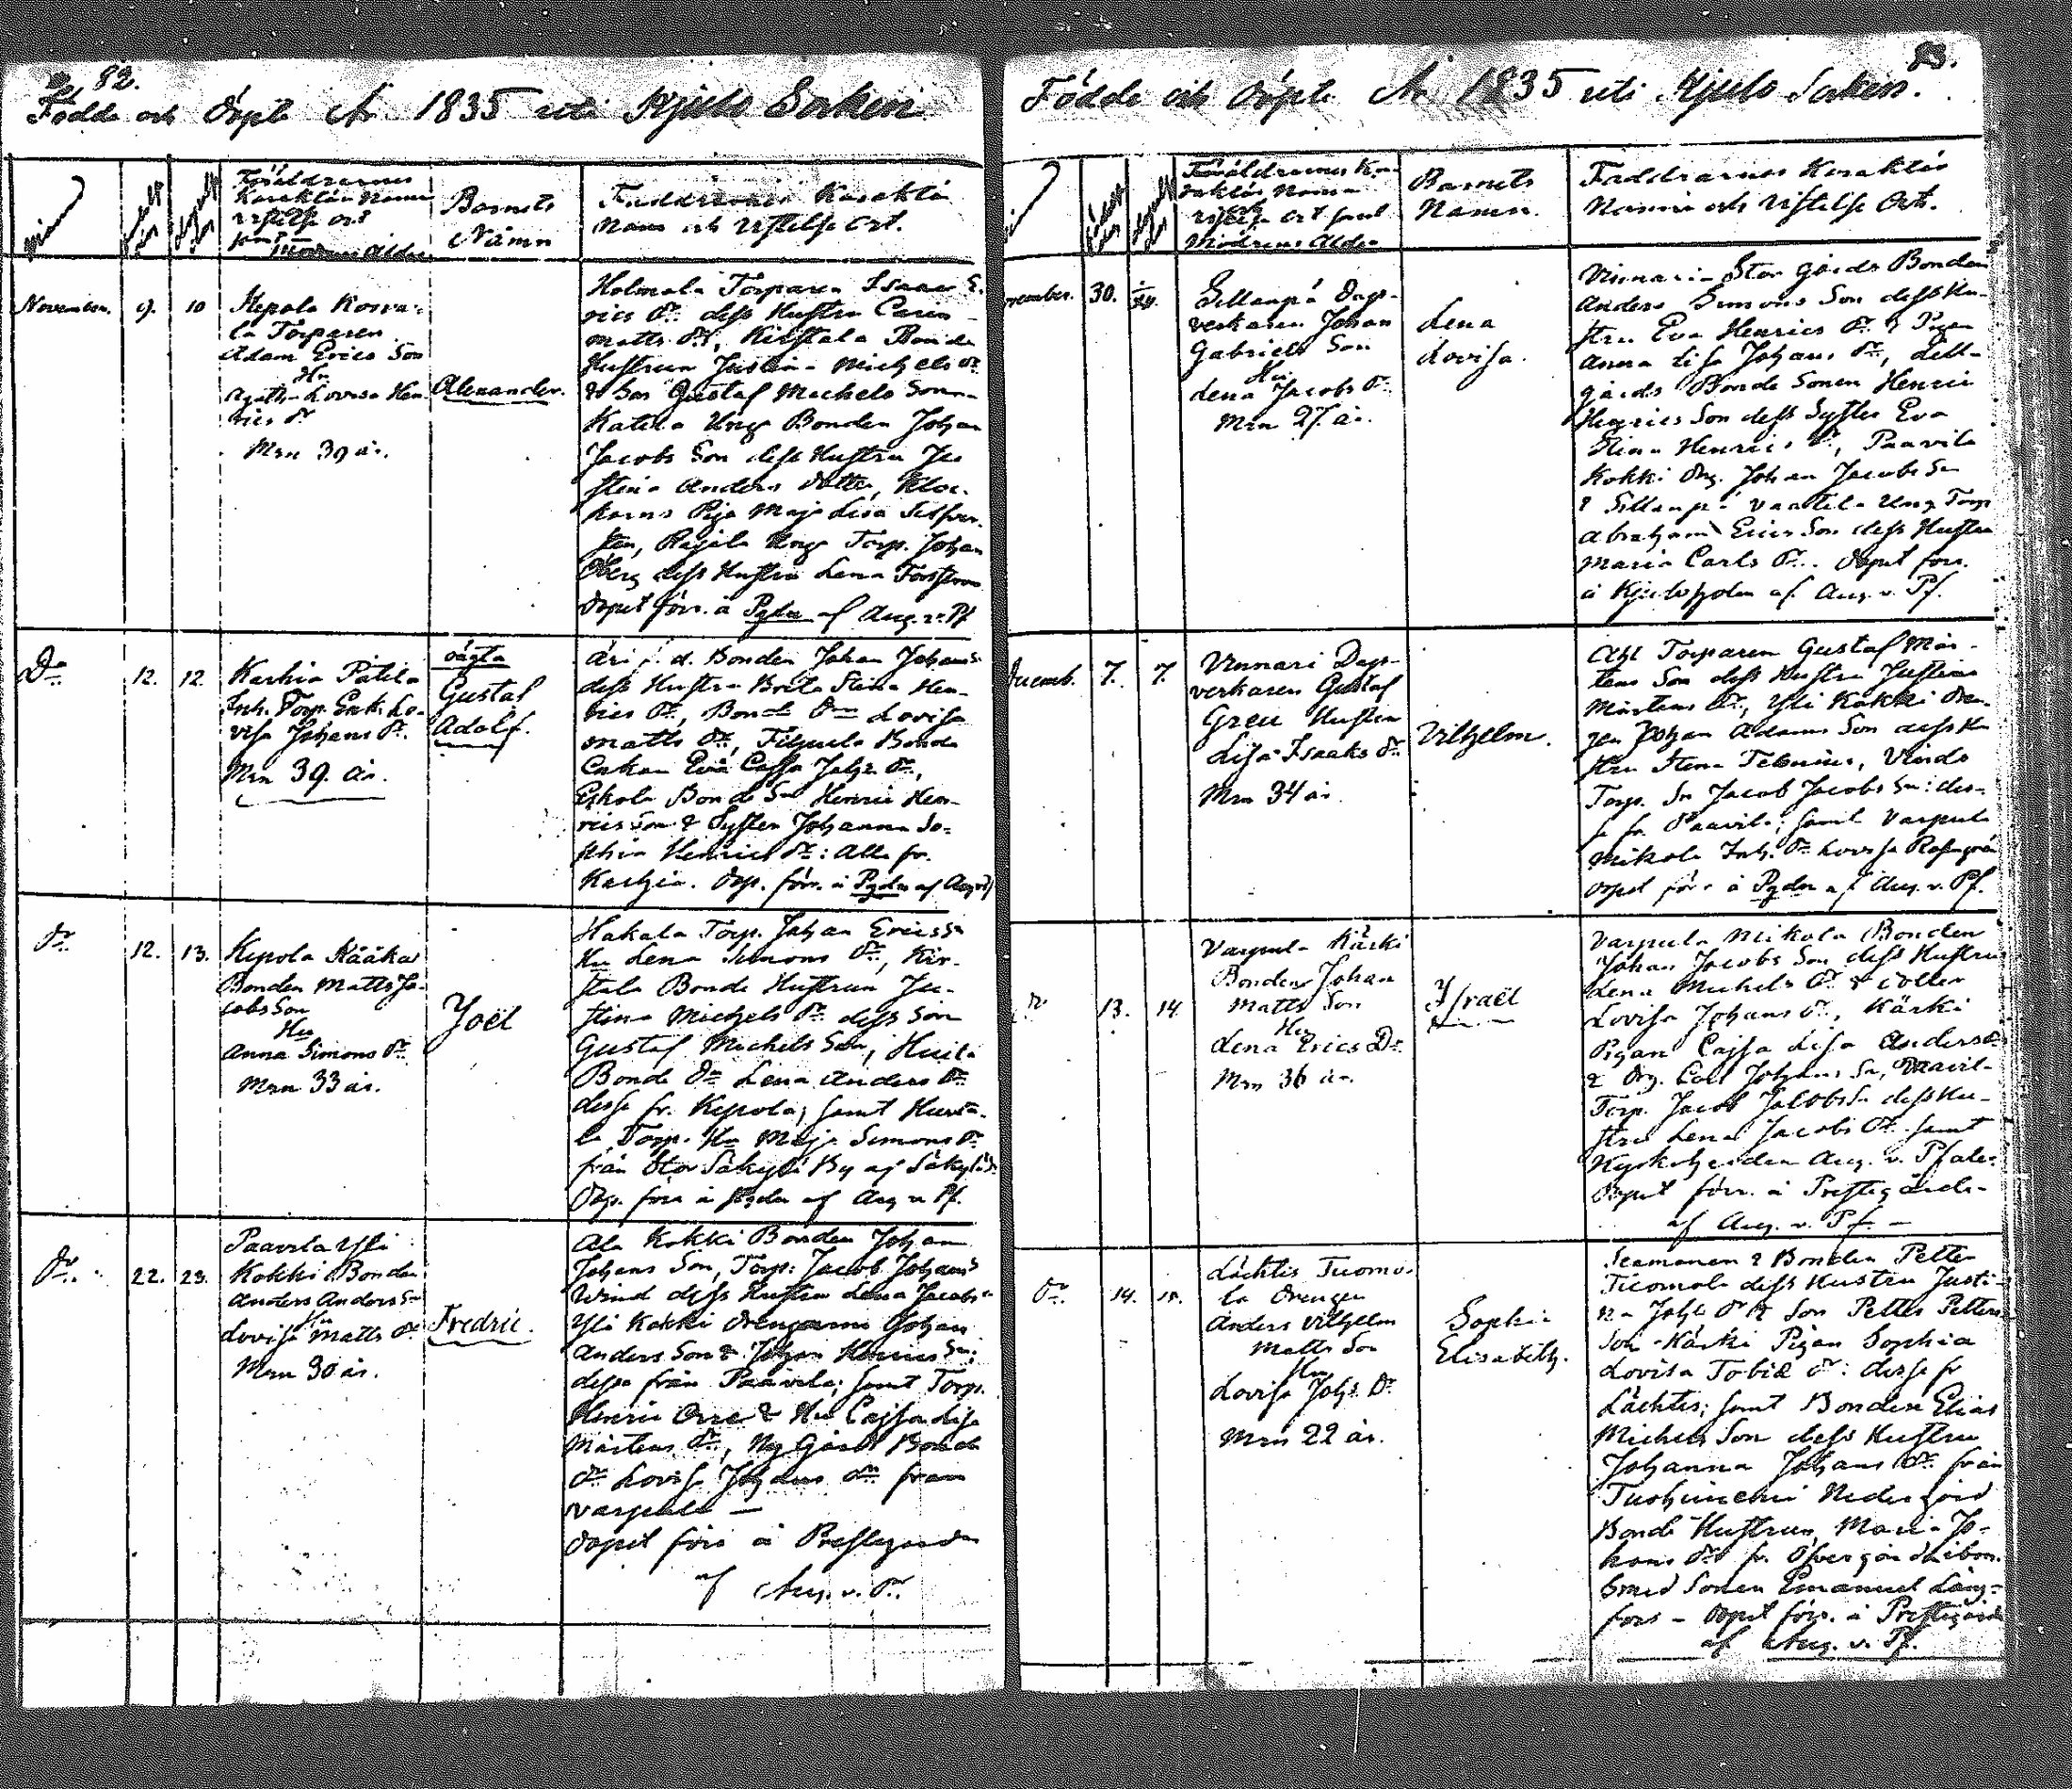 82.
Födde och Döpte År 1835 uti Kjulo Socken
Föräldrarnes
Karaktär Namn
Vistelse ort
samt
Modrens Ålder
Barnets
Namn
Faddrarnes Karaktär
Namn och Vistelse Ort.
November.
9.
10
Kepola
la Torparen
Adam Erics Son
Hu
Lovisa Hen
rics Dr
Mrn 39 år.
Alexander.
Holmala Torparen Isaac E.
rics Sn dess Hustru Caren
Matts Dr, Kirstala Bonde
Hustrun Justina Michels Dr
& Son Gustaf Michels Son
Katila Ung Bonden Johan
Jacobs Son dess Hustru Ju
stina Anders Dotter, Kloc.
karns Piga Maja Lisa
Torp. Johan
Öberg dess Hustru Lena
Döpet förr. å Pgdn af Aug. v. Pf
Do
12.
12
Karhia Pätila
Inh. Torp. Enk. Lo-
visa Johans Dr.
Mrn 39. år.
oägta
Gustaf
Adolf.
Bonden Johan Johans
dess Hustru Brita Stina Hen-
rics Dr, Bonde Drn Lovisa
Matts Dr, Bonde
Enkan Eva Cajsa Johs Dr,
Eskola Bonde Sn Henric Hen-
rics Son & Syster Johanna So-
phia Henrics Dr: alla fr.
Karhia. Döp. förr. å Pgdn af Aug v Pf
Do
12.
13.
Kepola Kääka
Bonden Matts Ja-
cobs Son
Hu
Anna Simons Dr
Mrn 33 år.
Joël
Hakala Torp. Johan Erics Sn
Hu Lena Simons Dr, Kir-
stala Bonde Hustrun Ju-
stina Michels Dr dess Son
Gustaf Michels Son,
Bonde Dr Lena Anders Dr
desse fr. Kepola; samt
la Torp. Hu Maja Simons Dr
från Stor Säkylä By af Säkylä
Döp. förr å Pgdn af Aug v Pf.
Do.
22.
23.
Paavila Yli
Kokki Bonden
Anders Anders Sn
Hu
Lovisa Matts Dr
Mrn 30 år.
Fredric.
Ala Kokki Bonden Johan
Johans Son, Torp. Jacob Johans
Wind dess Hustru Lena Jacobs
Yli Kokki Drengarne Johan
Anders Son & Johan Henrics Sn;
desse från Paavila; samt Torp.
Henric Orre & Hu Cajsa Lisa
Mårtens Dr, Ny Gårds Bonde
Dr Lovisa Johans Dr från
Varpula —
Döpet förr å Prestegården
af Aug. v. Pf.
83.
Födde och Döpte År 1835 uti Kjulo Socken.
Föräldrarnes Ka-
raktär Namn
Vistelse ort samt
Modrens Ålder
Barnets
Namn.
Faddrarnes Karaktär
Namn och Vistelse Ort.
November.
30.
Sillanpä Dags-
verkaren Johan
Gabriels Son
Hu
Lena Jacobs Dr.
Mrn 27 år.
Lena
Lovisa.
Vinnari Stor Gårds Bonden
Anders Simons Son dess Hu-
stru Eva Henrics Dr & Pigan
Anna Lisa Johans Dr, Lill-
gårds Bonde Sonen Henric
Henrics Son dess Syster Eva
Stina Henrics Dr, Paavila
Kokki Drg. Johan Jacobs Sn
& Sillanpä Vaatila Ung Torp
Abraham Erics Son dess Hustru
Maria Carls Dr. Döpet förr.
å Kjuloholm af Aug. v. Pf.
Decemb.
7.
7.
Vinnari Dags-
verkaren Gustaf
Gren Hustru
Lisa Isaks Dr
Mrn 34 år
Vilhelm.
Torparen Gustaf Mår-
tens Son dess Hustru Justina
Mårtens Dr, Yli Kokki Dren-
gen Johan Adams Son dess Hu
stru Stina
Torp. Sn Jacob Jacobs Sn: des-
se fr. Paavila; samt Varpula
Mikola Inh. Dr Lovisa
Döpet förr å Pgdn af Aug. v. Pf.
13.
14
Varpula Kärki
Bonden Johan
Matts Son
Hu
Lena Erics Dr.
Mrn 36 år.
Israël
Varpula Mikola Bonden
Johan Jacobs Son dess Hustru
Lena Michels Dr & dotter
Lovisa Johans Dr, Kärki
Pigan Cajsa Lisa Anders Dr
& Drg. Carl Johans Sn, Paavil-
Torp. Jacob Jacobs Sn dess Hu-
stru Lena Jacobs Dr samt
Kyrkoherden Aug. v. Pfaler
Döpet förr. å Prestegården
af Aug. v. Pf. —
Do
14.
15.
Lächtis Tuomo.
la Drengen
Anders Vilhelm
Matts Son
Hu
Lovisa Johs Dr
Mrn 22 år.
Sophia
Elisabeth.
& Bonden Petter
Tuomola dess Hustru Justi-
na Johs Dr & Son Petter Petters
Son Kärki Pigan Sophia
Lovisa Tobia Dr: desse fr
Lächtis; samt Bonden Elias
Michels Son dess Hustru
Johanna Johans Dr från
Nedergård
Bonde Hustrun Maria Jo-
hans Dr fr. Öfvergård
Smed Sonen Emanuel Läng-
fors – Döpet förr. å Prestegården
af Aug. v. Pf.